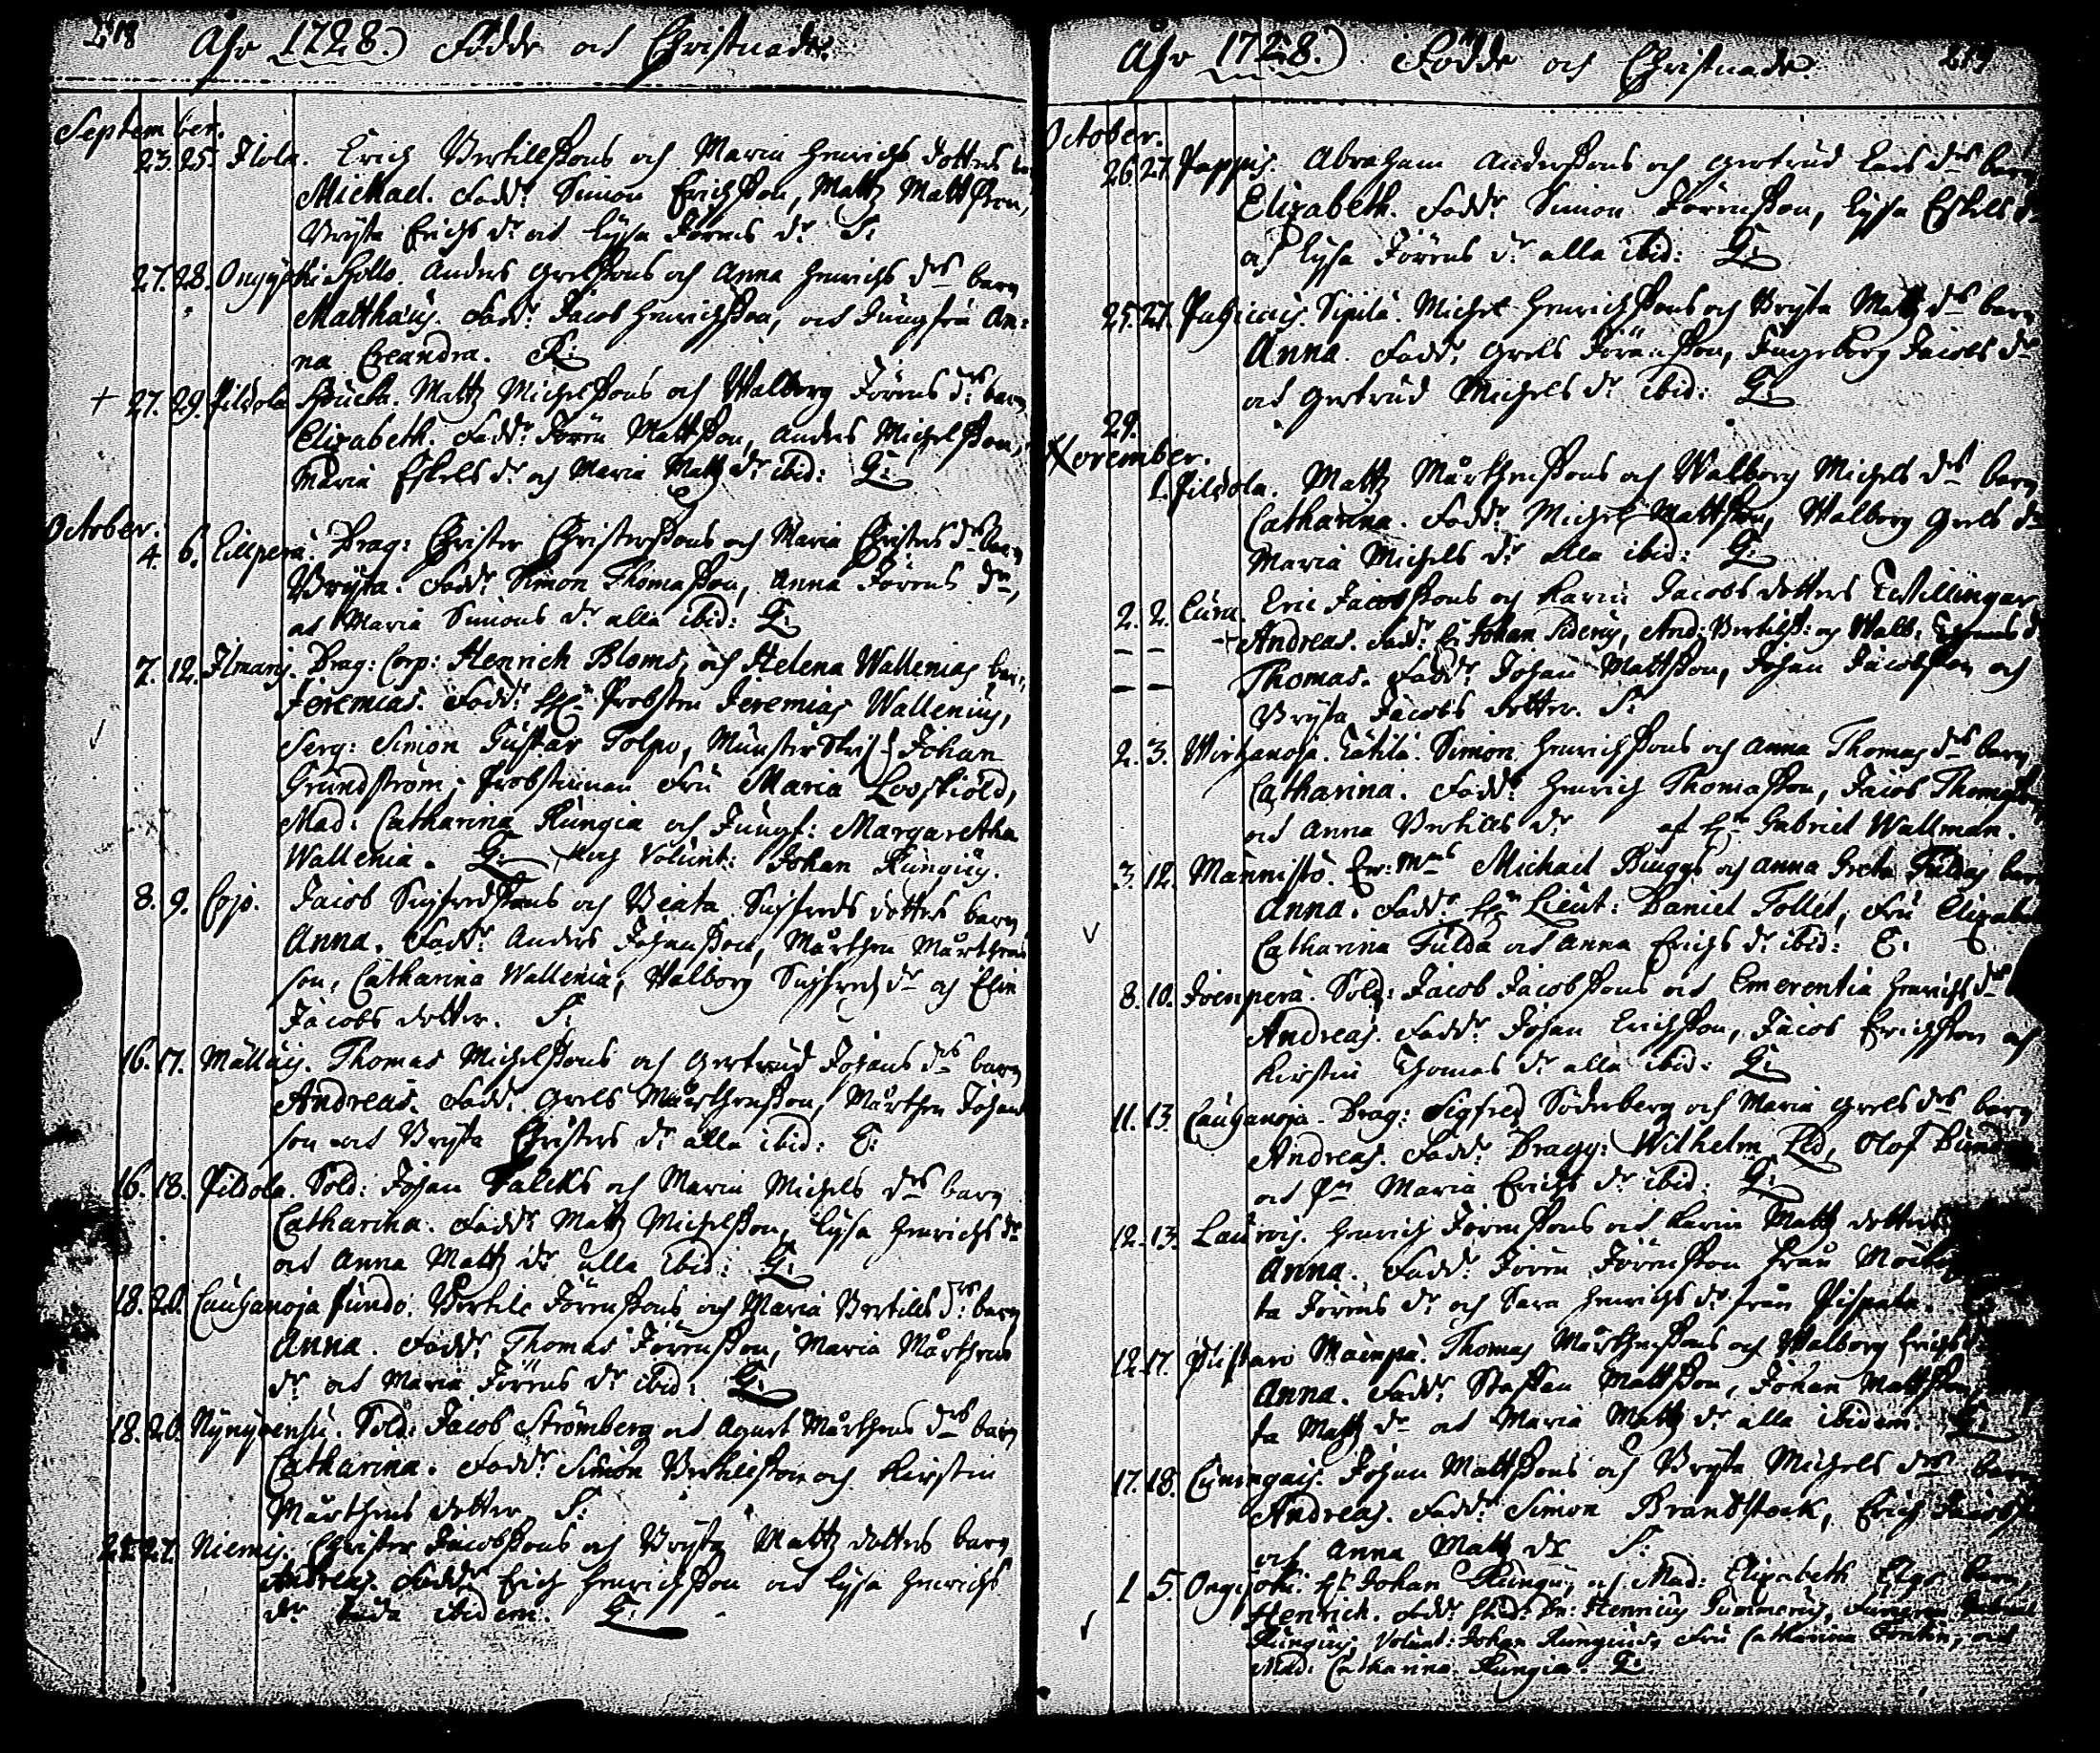 218 Åhr 1728. Födde och Christnade.
September.
23. 25. Ilola. Erich Bertillssons och Maria Henrichs dotters
Michael. Fadd: Simon Erichsson, Mattz Mattsson,
Bryta Erichs dr och Lysa Jörens dr S:
27. 28. Ongypki Hollo. Anders Grelssons och Anna Henrichs drs barn
Matthæus. Fadd: Jacob Henrichsson, och Jungfru An:
na Creandra.
+ 27. 29. Pildola. Mattz Michelssons och Walborg Jörens drs barn
Elizabeth. Fadd: Jören Mattsson, Anders Michelsson,
Maria Eskels dr och Maria Mattz dr ibid: G:
October.
4. 6. Lillperä. Drag: Christer Christerssons och Maria Christers drs barn
Bryta. Fadd: Simon Thomasson, Anna Jörens dr,
och Maria Simons dr alla ibid: G:
7. 12. Ilmaris. Drag: Corp: Henrich Bloms, och Helena Wallenias bar:
Jeremias. Fadd: Hr Probsten Jeremias Wallenius,
Serg: Simon Gustav Polpo, Munsterskrif: Johan
Grundström, Probstinnan Fru Maria Lodskiöld,
Mad: Catharina Rungia och Jungf: Margaretha
Wallenia. G: Volunt: Johan Rungius.
8. 9. Jacob Sigfredssons och Beata Sigfreds dotters barn
Anna. Fadd: Anders Johansson, Mårthen Mårthens
son, Catharina Wallenia, Walborg Sigfreds dr och Elin
Jacobs dotter. S:
16. 17. Mälläis. Thomas Michelssons och Gertrud Johans drs barn
Andreas. Fadd: Grels Mårthensson, Mårthen Johans
son och Bryta Christers dr alla ibid: E:
16. 18. Pildola. Sold: Johan Falcks och Maria Michels drs barn
Catharina. Fadd: Mattz Michelsson, Lysa Henrichs dr
och Anna Mattz dr alla ibid: G:
18. 20. Cauhanoja Jundo. Bertill Jörenssons och Maria Bertills drs barn
Anna. Fadd: Thomas Jörensson, Maria Mårthens
dr och Maria Jörens dr ibid: G:
18. 20. Sold: Jacob Strömberg och Agnet Mårthens drs barn
Catharina. Fadd: Simon Bertillsson och Kirstin
Mårthens dotter S:
27. Niemis. Christer Jacobssons och Bryta Mattz dotters barn
Andreas. Fadd: Erich Henrichsson och Lysa Henrichs
dr båda ibidem. G:
Åhr 1728. Födde och Christnade. 219
October.
26. 27. Pappis. Abraham Anderssons och Gertrud Lars drs barn
Elizabeth. Fadd: Simon Jörensson, Lysa Eskels dr
och Lysa Jörens dr alla ibid: G:
25. 27. Sipilä. Michel Henrichssons och Bryta Mattz drs barn
Anna. Fadd: Grels Jöransson, Ingeborg Jacobs dr
och Gertrud Michels dr ibid: G:
29.
November.
1. Pildola. Mattz Mårthenssons och Walborg Michels drs barn
Catharina. Fadd: Michel Mattsson, Walborg Grels dr
Maria Michels dr alla ibid: G:
2. 2. Eura. Eric Jacobssons och Karin Jacobs dotters Twillingar
– – + Andreas. Fadd: Hr Johan Sidenius, And: Bertilss: och Walb:
– – Thomas. Fadd: Johan Mattsson, Johan Jacobsson och
Bryta Jacobs dotter. S:
2. 3. Wirhanoja. Simon Henrichssons och Anna Thomas drs barn
Catharina. Fadd: Henrich Thomasson, Jacob Thomasson
och Anna Bertills dr af Hr Gabriel Wallman.
3. 12. Mannistö. Michael Buggs och Anna Greta Fuldas barn
Anna. Fadd: Hr Lieut: Daniel Tollet, Fru Elizabet
Catharina Fulda och Anna Erichs dr ibid: E:
8. 10. Joenperä. Sold: Jacob Jacobssons och Emerentia Henrichs drs
Andreas. Fadd: Johan Erichsson, Jacob Erichsson och
Kirstin Thomas dr alla ibid: G:
11. 13. Cauhanoja. Drag: Sigfred Söderberg och Maria Grels drs barn
Andreas. Fadd: Dragg: Wilhelm Eld, Olof
och Maria Erichs dr ibid: G:
12. 13. Laurois. Henrich Jörenssons och Karin Mattz dotters
Anna. Fadd: Jören Jörensson från
ta Jörens dr och Sara Henrichs dr från Pispala.
12. 17. Thomas Mårthenssons och Walborg Erichs
Anna. Fadd: Staffan Mattsson, Johan Mattsson,
ta Mattz dr och Maria Mattz dr alla ibidem. G:
17. 18. Cuningais. Johan Mattssons och Bryta Michels drs barn
Andreas. Fadd: Simon Brandstock, Erich Jacobs
och Anna Mattz dr S:
1 5. Hr Johan Rungii, och Mad: Elizabeth barn,
Henrich. Fadd: Henricus Gummerus,
Rungius, Volunt: Johan Rungius, Fru Catharina och
Mad: Catharina Rungia. G: